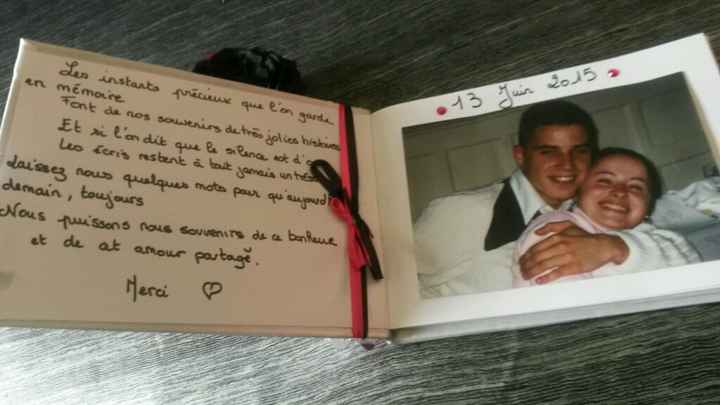 Les instants précieux que l'on garde
en mémoire
Font de nos souvenirs de très jolies histoires
Et si l'on dit que le silence est d'
Les écris restent à tout jamais un
Laissez nous quelques mots pour qu'aujourd'
demain, toujours
Nous puissons nous souvenirs de ce bonheur
et de at amour partagé.
Merci
13 Juin 2015